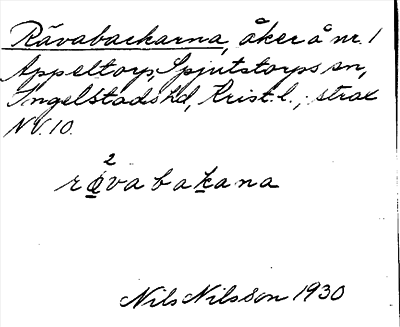 Rävabackarna, åker å nr. 1
Appeltorp, Spjutstorps sn,
Ingelstads hd, Krist. l.; strax
NV. 10.
2
rövabakana
Nils Nilsson 1930